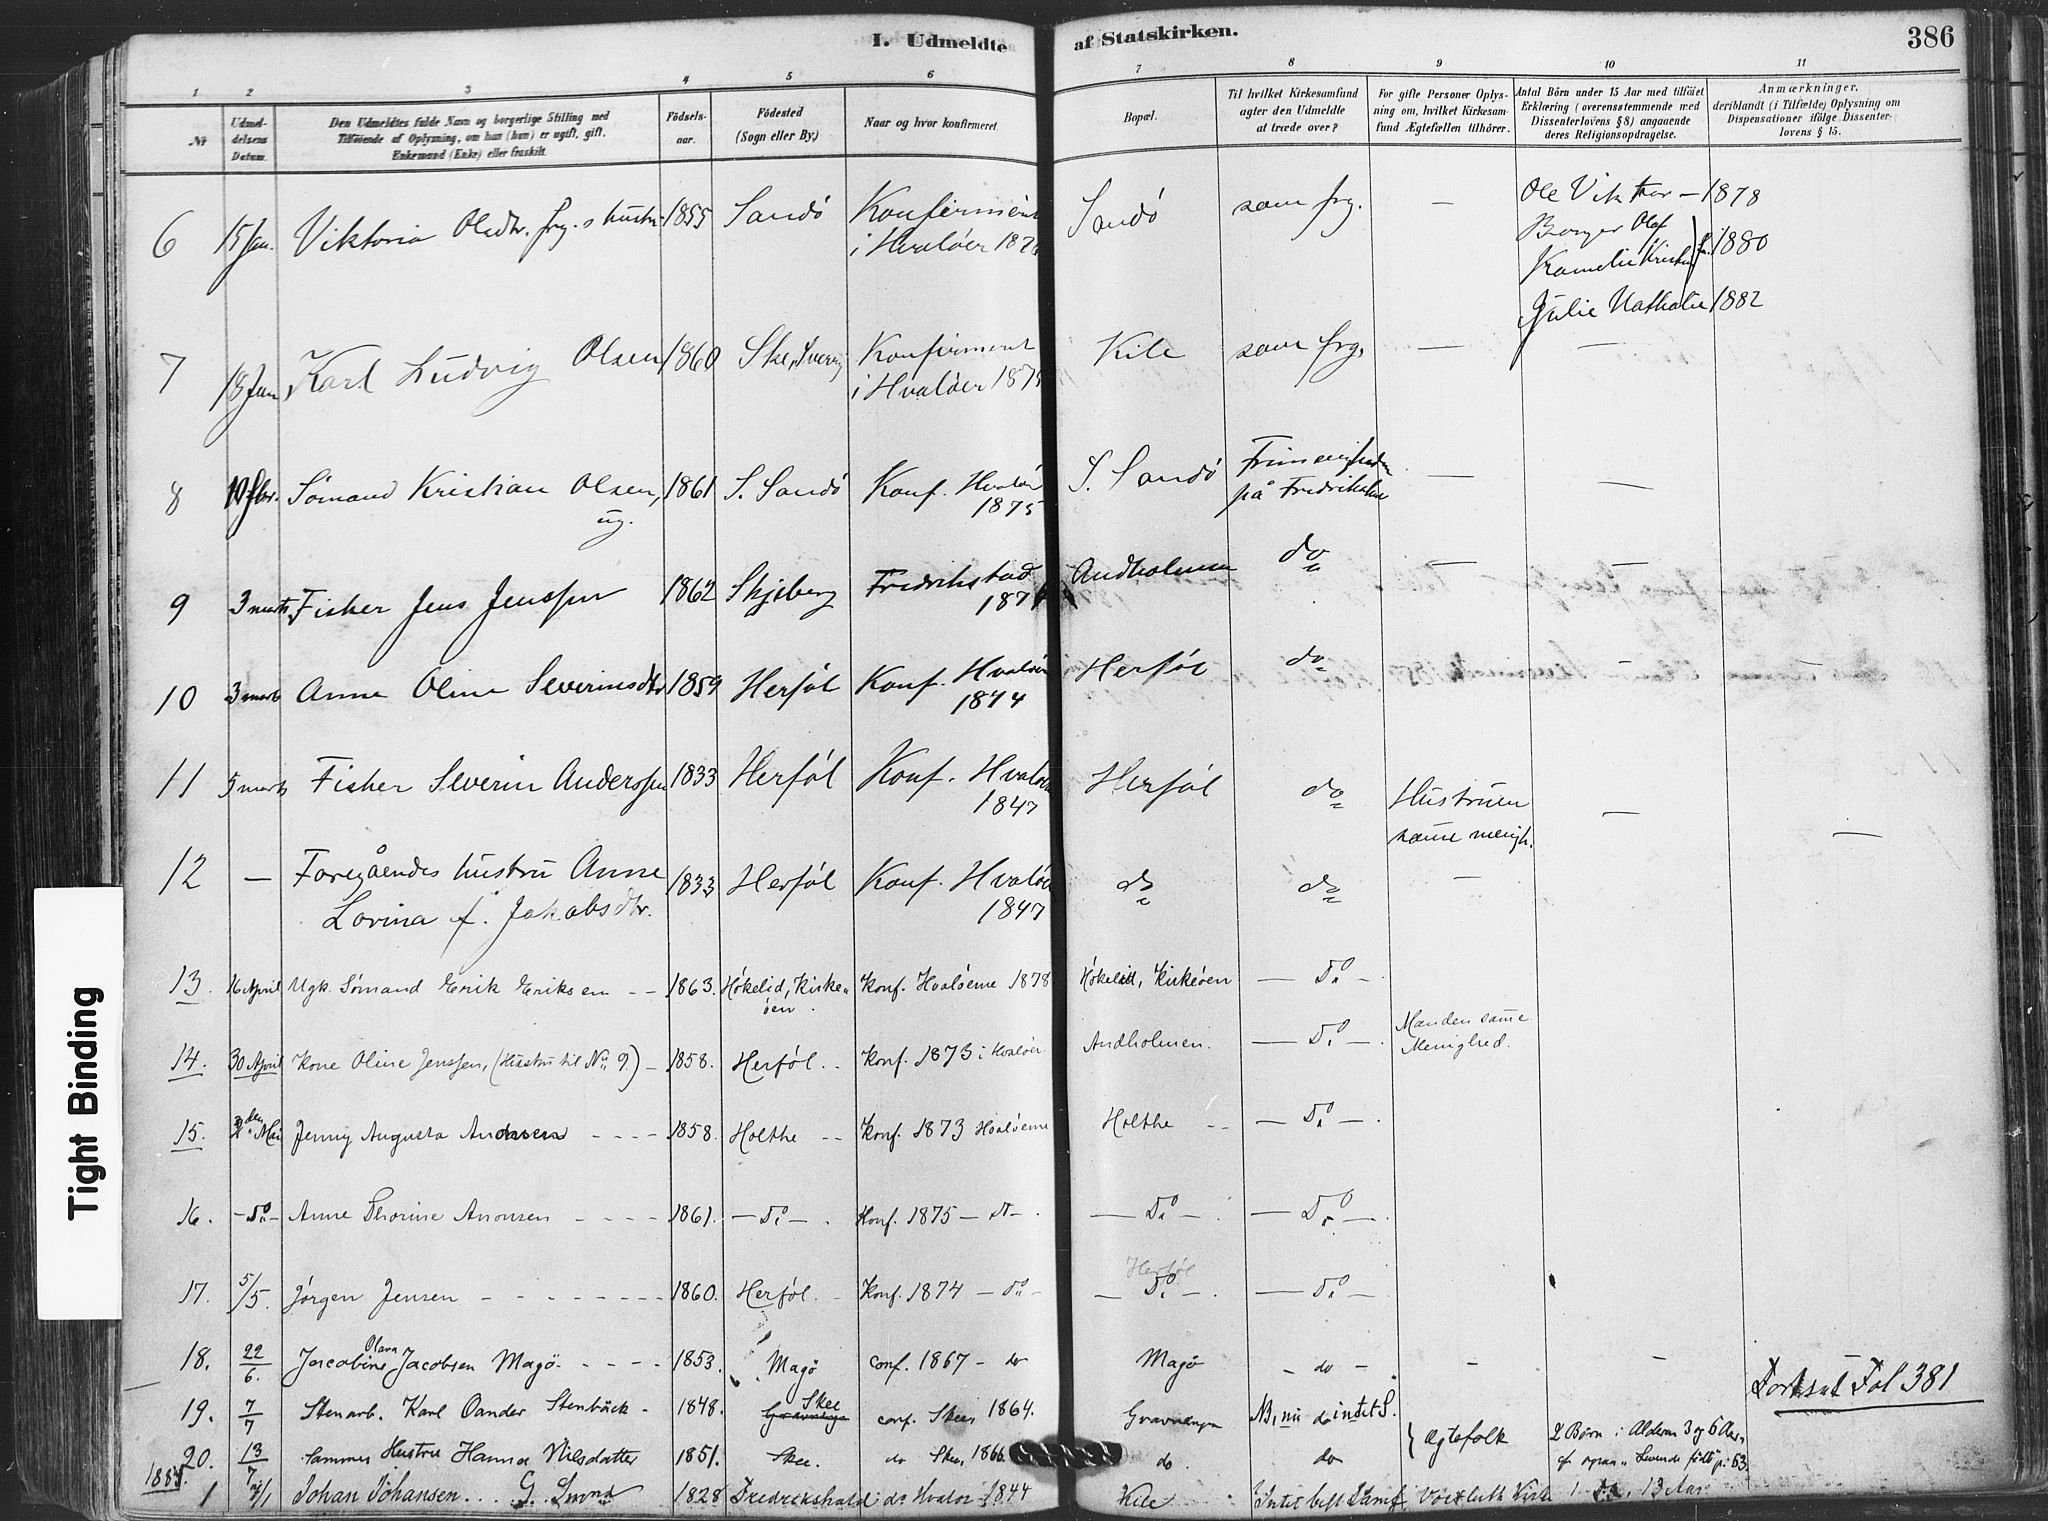 I. Udmeldte af Statskirken. 386
1 2 3 4 5 6 7 8 9 10 11
Nr
Udmeldelsens Datum.
Den Udmeldtes fulde Navn og borgerlige Stilling med
Tilføiende af Oplysning, om han (hun) er ugift, gift,
Enkemand (Enke) eller fraskilt.
Fødselsaar.
Fødested
(Sogn eller By.)
Naar og hvor konfirmeret.
Bopæl.
Til hvilket Kirkesamfund
agter den Udmeldte
at træde over?
For gifte Personer Oplysning om, hvilket Kirkesamfund Ægtefællen tilhører.
Antal Børn under 15 Aar med tilføiet
Erklæring (overensstemmende med
Dissenterlovens § 8) angaaende
deres Religionsopdragelse.
Anmærkninger,
deriblandt (i Tilfælde) Oplysning om
Dispensationer ifølge Dissenterlovens § 15.
6 15 Jan. Viktoria Olsdtr. frg.s hustru 1855 Sandö Konfirment Sandö som frg. — Ole Viktor – 1878
i Hvaløer
Borger Olaf
Kamelie 1880
Julie Nathalie 1882
7 18 Jan. Karl Ludvig Olsen 1860 Skee, Sverig Konfirment Kile som frg. — —
i Hvaløer
8 Sömand Kristian Olsen, 1861 S. Sandö Konf. Hvalör S. Sandö Frimenigheden — —
ug. 1875 på Fredrikshald
9 3 marts Fisker Jens Jenssen 1862 Skjeberg Fredrikstad Andholmen do — —
10 3 marts Anne Oline Severinsdtr 1859 Herföl Konf. Hvalöer Herföl do — —
1874
11 5 marts Fisker Severin Anderssen 1833 Herföl Konf. Hvalöer Herföl do Hustruen — —
1847 samme menigh.
12 — Foregåendes hustru Anne 1833 Herföl Konf. Hvalöer do do —
Lovina f. Jakobsdtr. 1847
13. 16 April Ugk. Sömand Erik Eriksen – – 1863. Hökelid, Kirke- Konf. Hvalöerne 1878 Hökelid, Kirkeöen — Do –
öen.
14. 30 April Kone Oline Jenssen, (Hustru til No 9.) – 1858. Herföl. Konf. 1873 i Hvalöer. Andholmen. — Do — Manden samme
Menighed.
15. Mai Jenny Augusta Andersen – – – – 1858. Holthe – – Konf. 1873 Hvalöerne Holthe – – — Do —
16. – Do – Anne Thorine – – – – 1861. – Do – Konf. 1875 – do – — Do — — Do —
17. 5/5. Jörgen Jensen – – – – – – – – 1860. Herföl. Konf. 1874 – do – Herföl
— Do — — Do —
18. 22/6. Jacobine Olava Jacobsen Magö – – – – 1853. Magö conf. 1867 – do Magö – do – – –
Fortsat Fol 381
19. 7/7 Stenarb. Karl Oander Stenbäck – 1848. Skee conf. Skee 1864. NB, nu do intet S.
20. 13/7 Sammes Hustru Hanna Nilsdatter 1851. Skee. do Skee, 1866 do. do } Ægtefolk 2 Børn i Alderen 3 og 6 Aar,
1 Johan Johansen 1828 Fredrikshald do Hvalör 1844 Kile Intet best Samf 1 13 Aar
Tight Binding